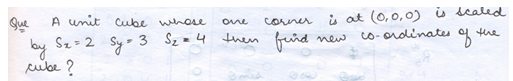 Que A unit cube whose one corner is at (0,0,0) is scaled
by Sx = 2 Sy = 3 Sz = 4 then find new co-ordinates of the
cube ?